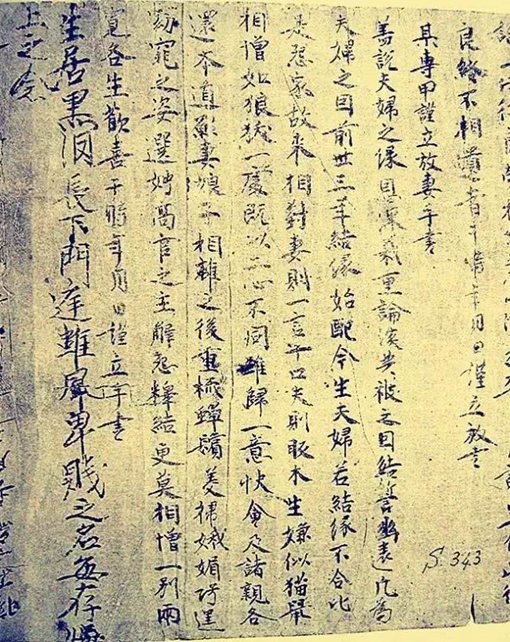 不相遺者于時年月日謹立放書
某專甲謹立放妻手書
盖説夫婦之緣恩深義重論談共被之因結誓幽遠凡為
夫婦之因前世三年結緣始配今生夫婦若結緣不合比
是怨家故來相對妻則一言十口夫則反木生嫌似猫鼠
相憎如狼狖一處既以二心不同難歸一意快會及諸親各
還本道願妻娘子相離之後重梳蟬鬢美掃娥媚巧逞
窈窕之姿選娉高官之主解怨釋結更莫相憎一別兩
寬各生歡喜于時年月日謹立手書
生居黑長下門庭雖卑賤之名每存
上之念
S.343